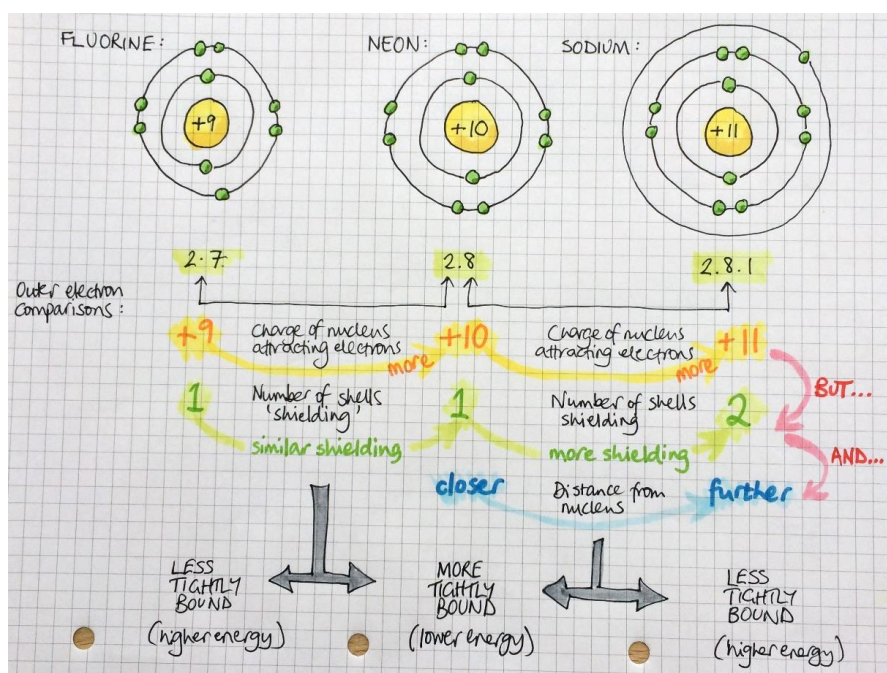 FLUORINE:
NEON:
SODIUM:
+9
+10
+11
2.7
2.8
2.8.1
Outer electron
comparisons:
+9
Charge of nucleus
attracting electrons
more
+10
Charge of nucleus
attracting electrons
more
+11
BUT...
1
Number of shells
'shielding'
similar shielding
1
Number of shells
shielding
more shielding
2
AND...
closer
Distance from
nucleus
further
LESS
TIGHTLY
BOUND
(higher energy)
MORE
TIGHTLY
BOUND
(lower energy)
LESS
TIGHTLY
BOUND
(higher energy)